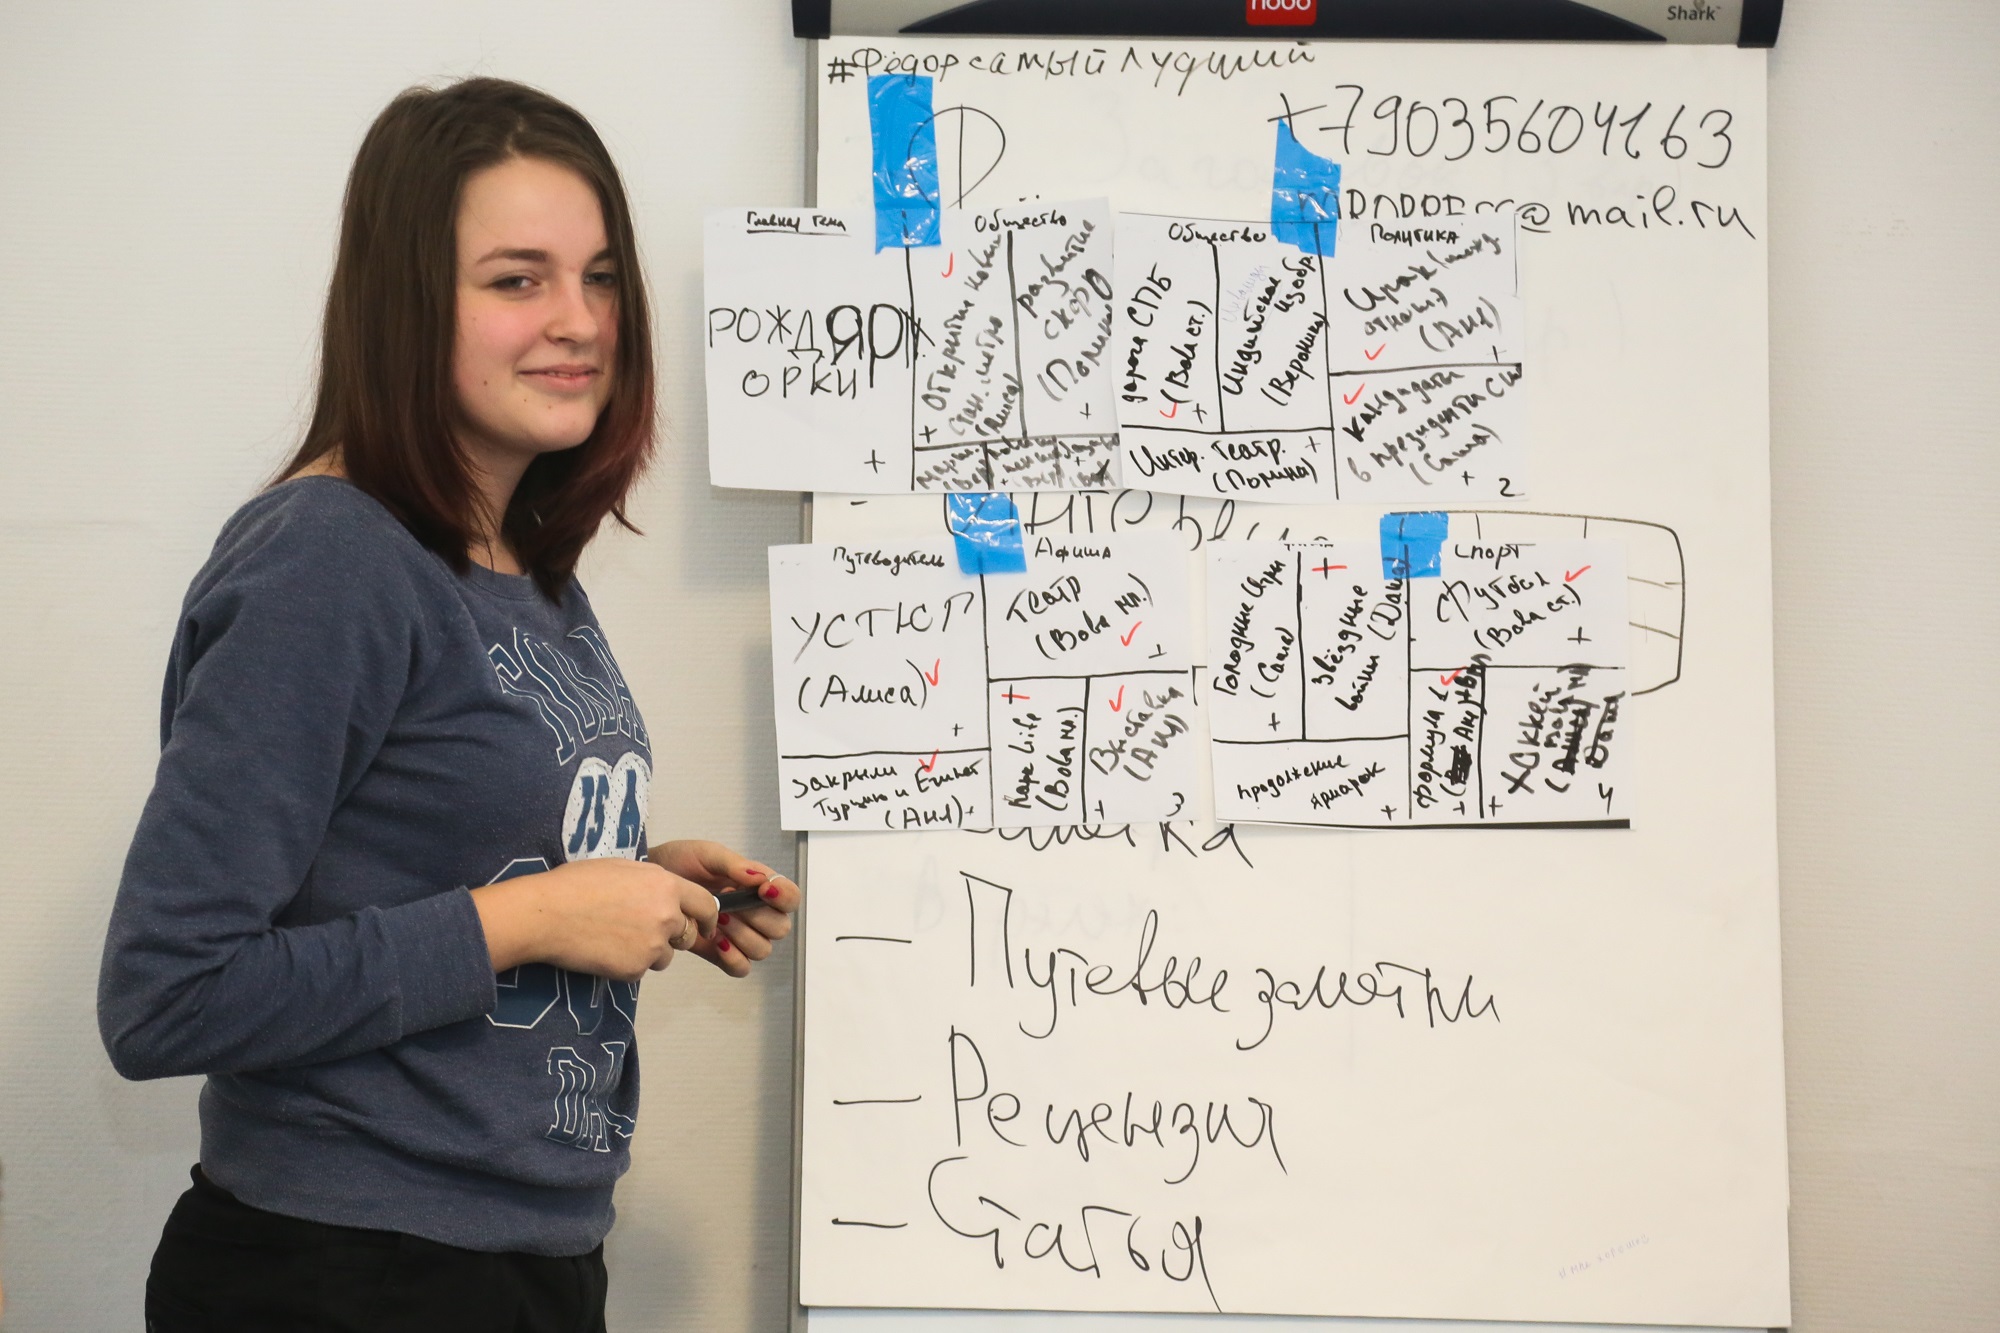 nobo
Shark
#Фёдорсамыйлучший
Ф
@mail.ru
Главная тема
РОЖД ЯРМ
ОРКИ
+
Общество
✓
Открытия новых
стан. метро
(Алиса)
+
Развитие
СКФО
(Полина)
+
Общество
дороги СПБ
(Вова ст.)
✓ +
Индийское
изобр.
(Вероника)
Интер. театр.
(Полина)
+
Политика
Ирак
(АНЯ)
✓ +
✓
Кандидаты
в президенты США
(Саша)
+
2
Путеводитель
УСТЮГ
(Алиса)
✓
+
Закрыли
Турцию и Египет
(АНЯ)
✓ +
Афиша
Театр
(Вова мл.)
✓ +
+
Life
(Вова мл.)
✓
Выставка
(АНЯ)
+
3
Голодные Игры
(Саша)
+
+
Звёздные
войны (Даша)
продолжение
ярмарок
+
Спорт
Футбол
(Вова ст.)
✓ +
✓
Формула 1
+
Хоккей
+
4
— Путевые заметки
— Рецензия
— Статья